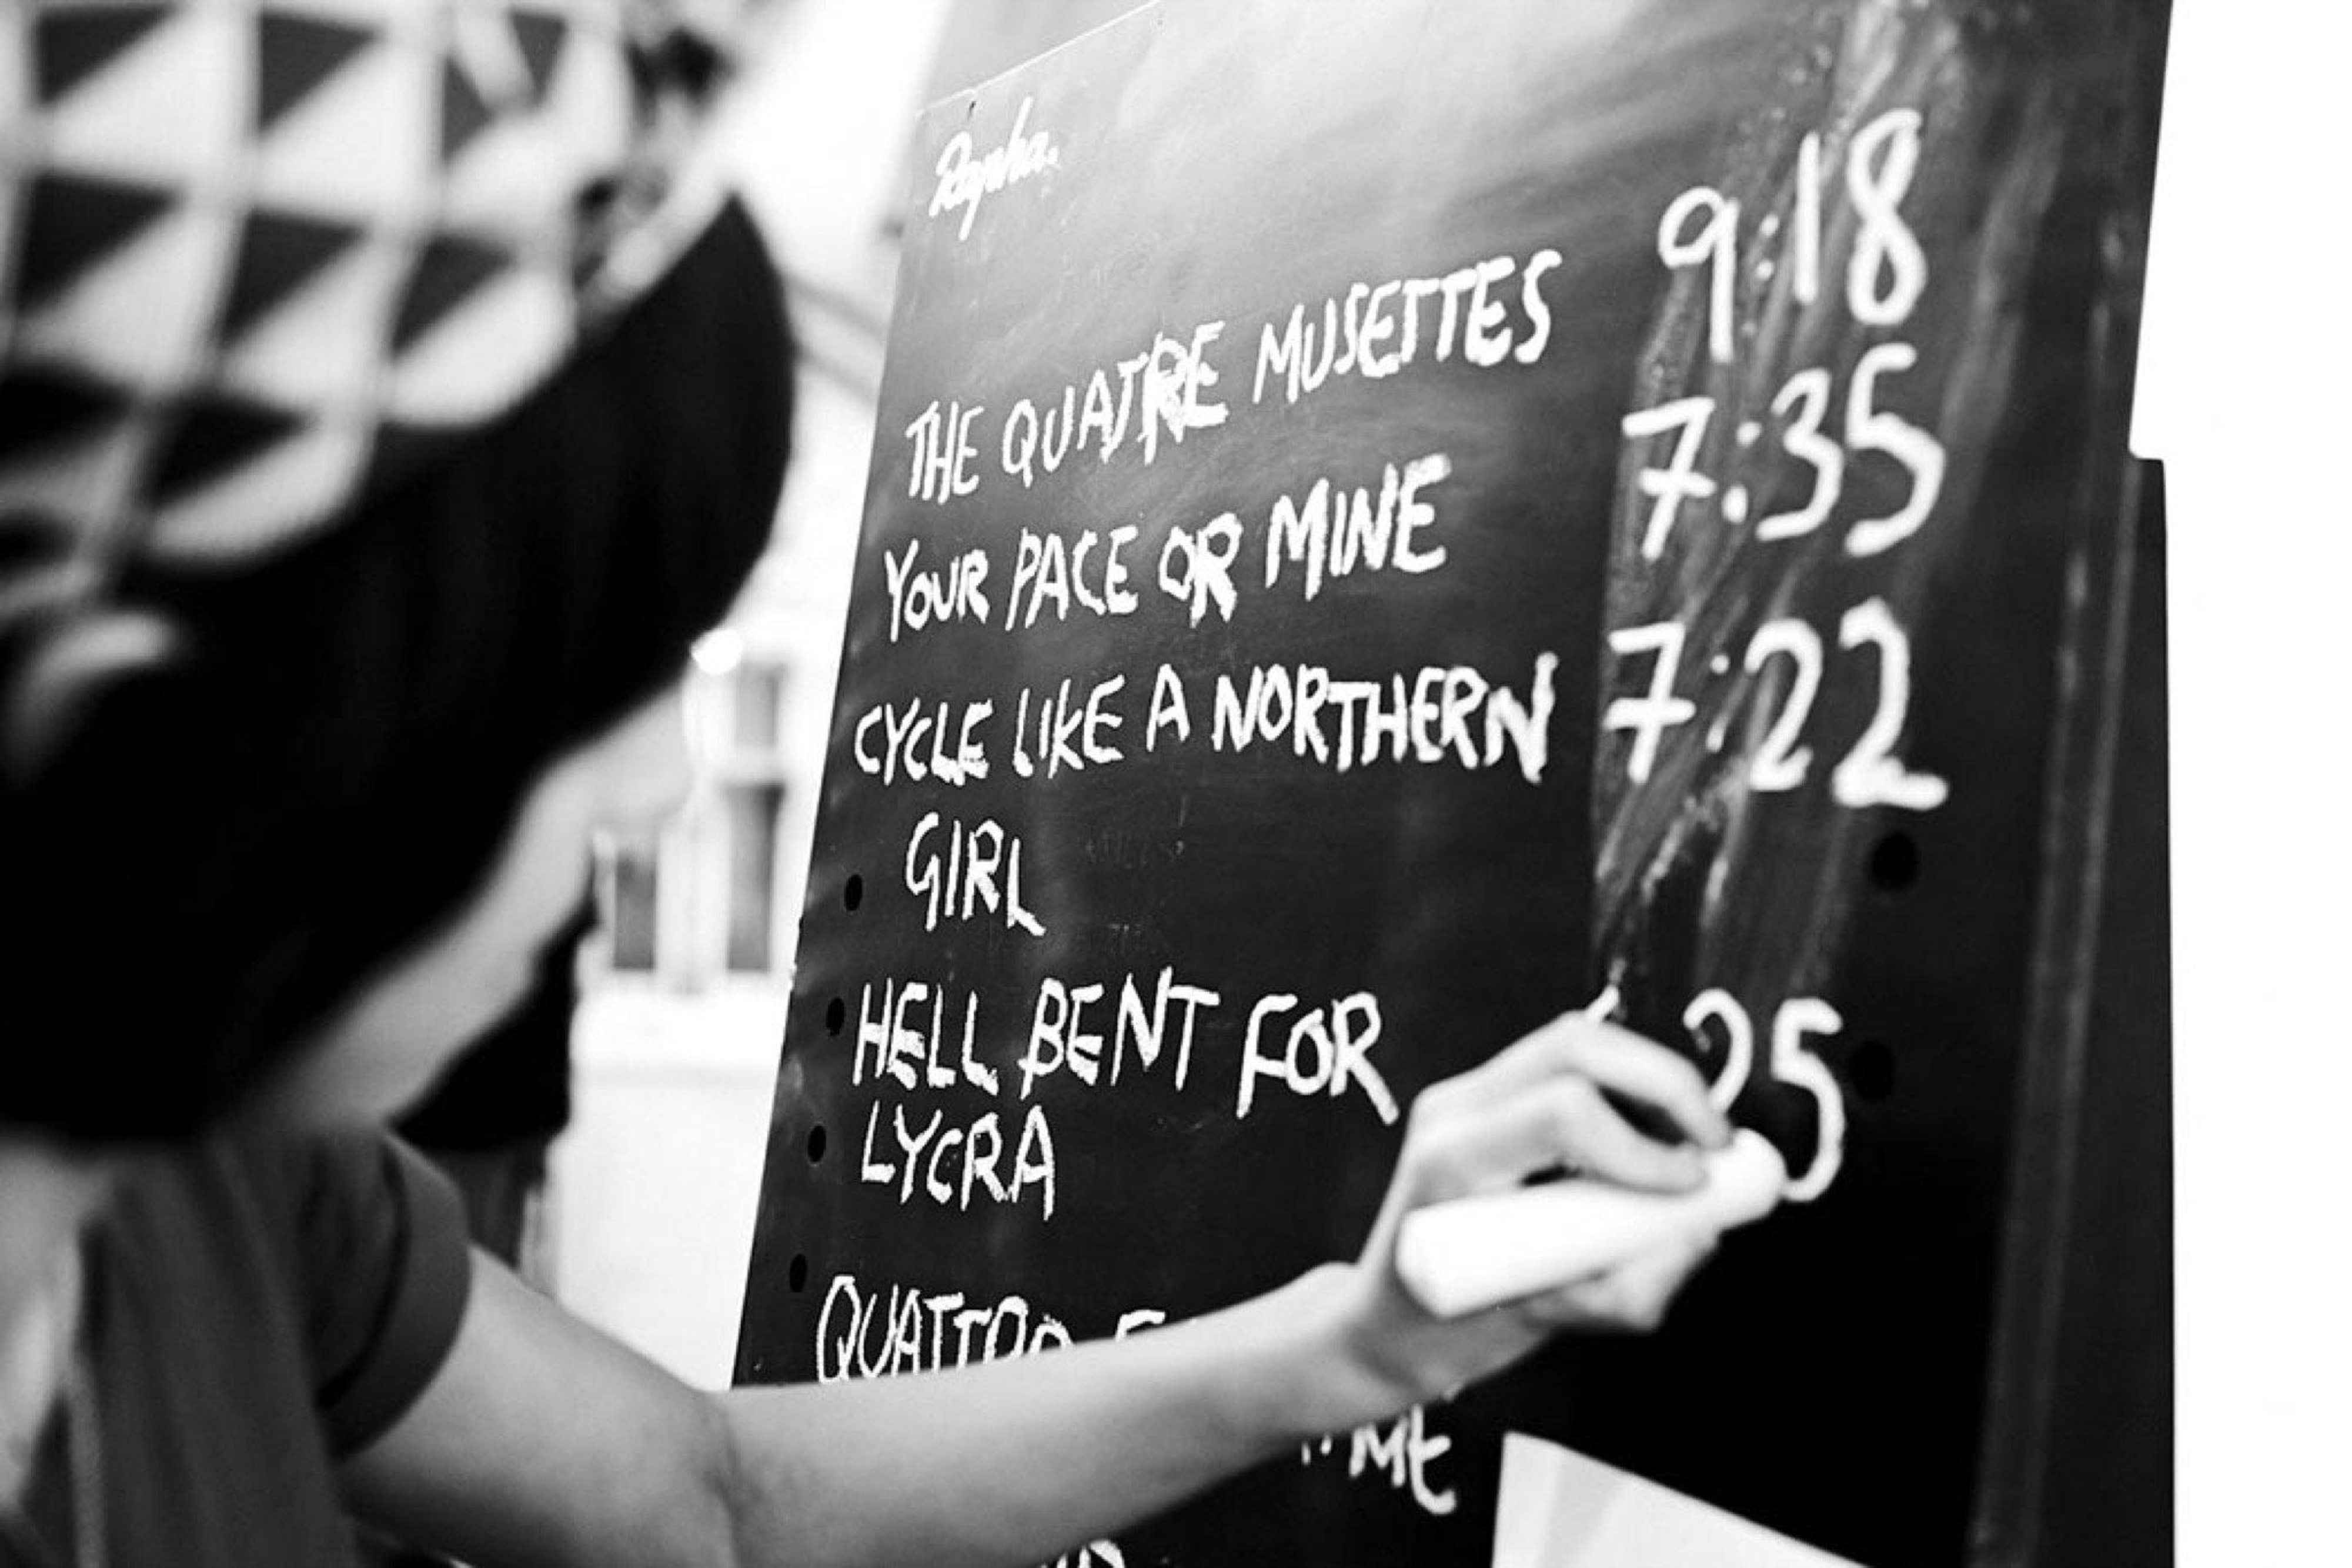 Rapha.
THE QUATRE MUSETTES 9:18
YOUR PACE OR MINE 7:35
CYCLE LIKE A NORTHERN 7:22
GIRL
HELL BENT FOR 25
LYCRA
QUATTRO